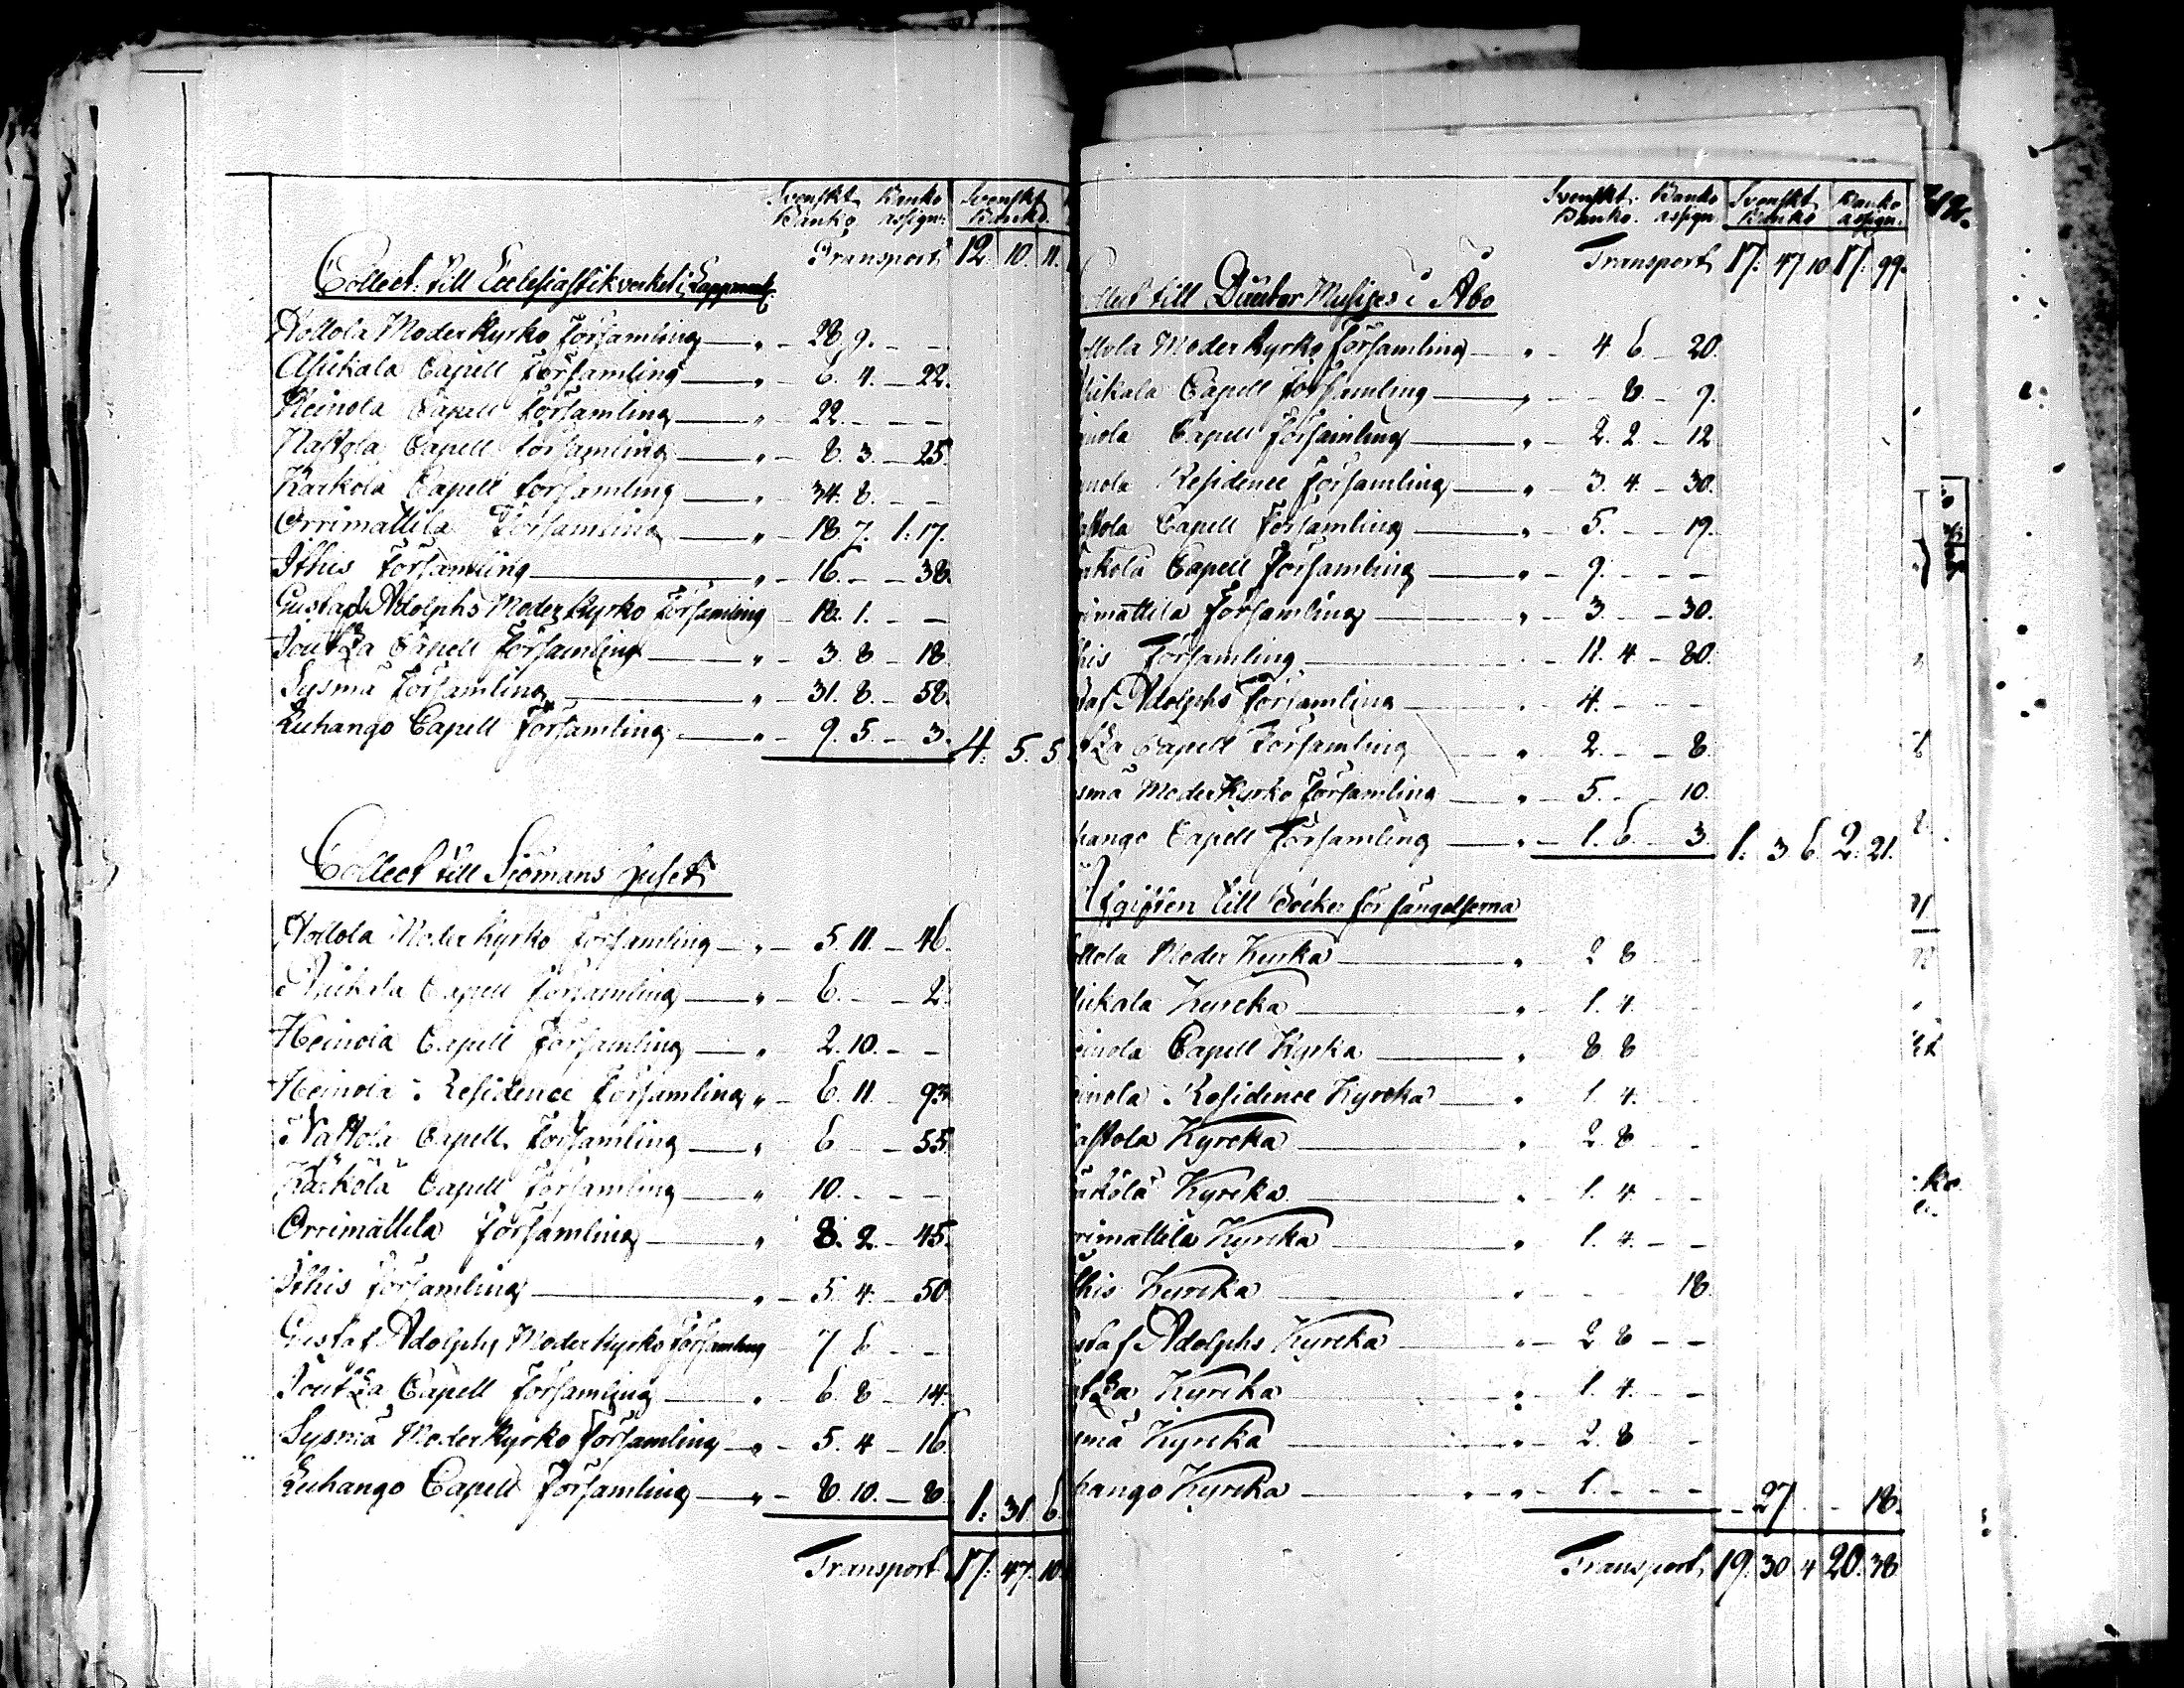 Svenskt Banko Svenskt
Banko. assign: Banco.
Transport 12. 10. 11.
Collect: till Ecclesiastikverket i Lappmark.
Hollola Moderkyrko Församling — " — 28. 9. — —
Asikala Capell Församling — " — 6. 4. — 22.
Heinola Capell Församling — " — 22. — — —
Nastola Capell Församling — " — 8. 3. — 25.
Kärkölä Capell Församling — " — 34. 8. — —
Orrimattila Församling — " — 18. 7. 1: 17.
Ithis Församling — " — 16. — — 38.
Gustaf Adolphs Moderkyrko Församling — 18. 1. — —
Joutza Capell Församling — " — 3. 8. — 18.
Sysmä Församling — " — 31. 8. — 58.
Luhango Capell Församling — " — 9. 5. — 3. 4. 5. 5
Collect till Sjömans huset
Hollola Moderkyrko Församling — " — 5. 11. — 46.
Asikala Capell Församling — " — 6. — — 2.
Heinola Capell Församling — " — 2. 10. — —
Heinola Residence Församling " — 6. 11. — 93.
Nastola Capell Församling — " 6 — — 55.
Kärkölä Capell Församling — " 10. — — —
Orrimattila Församling — " 8. 2. — 45.
Ithis Församling — " — 5. 4. — 50.
Gustaf Adolphs Moderkyrko Församling 7 6 — —
Joutza Capell Församling — " 6. 8 — 14.
Sysmä Moderkyrko Församling — " — 5. 4 — 16
Luhango Capell Församling — " — 8. 10. — 8. 1: 31. 6.
Transport 17. 47. 10.
Svenskt Banko Svenskt Banko
Banko. assign Banko assign.
Transport 17. 47 10 17. 99.
ollect till i Åbo
ollola Moderkyrko Församling — " — 4. 6. — 20.
sikala Capell Församling — " — — 8. — 9.
inola Capell Församling — " — 2. 2. — 12
inola Residence Församling — " — 3. 4. — 30.
astola Capell Församling — " — 5. — — 19.
rkölä Capell Församling — " — 9. — — —
rimattila Församling — " — 3. — — 30.
this Församling — 11. 4. — 80.
taf Adolphs Församling — 4. — — —
tza Capell Församling — " — 2. — — 8.
smä Moderkyrko Församling — " — 5. — — 10.
hango Capell Församling — " — 1. 6. — 3. 1. 3 6. 2. 21.
Afgiften till Böcker för fängelserna
ollola Moder Kyrka — " 2 8
sikala Kyrcka — " 1. 4.
einola Capell Kyrka — " 8 8
einola Residence Kyrcka — " 1 4.
astola Kyrcka — " 2. 8 —
ärkölä Kyrcka — " 1. 4 — —
rrimattila Kyrcka — " 1. 4. — —
this Kyrcka — " — — — 18.
staf Adolphs Kyrcka — " — 2 8 — —
tza Kyrcka — " — 1. 4. — —
smä Kyrcka — " — 2. 8 —
hango Kyrcka — " — " — 1. — — — — 27 — — 18.
Transport 19. 30 4 20. 38